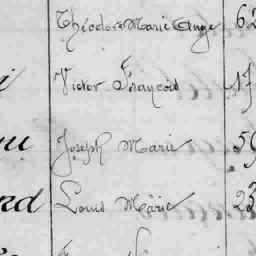 Théodore Marie Ange 62
i Victor François
Joseph Marie 59
rd Louis Marie 23